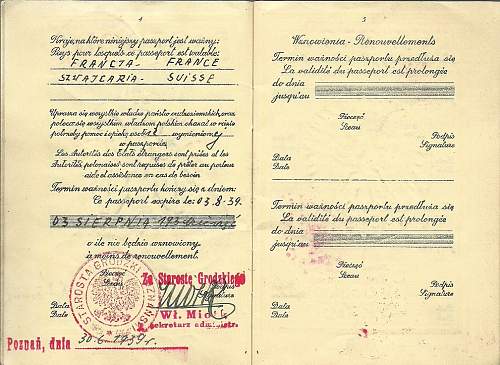 4
Kraje, na które niniejszy paszport jest ważny:
Pays pour lesquels ce passeport est valable:
FRANCJA - FRANCE
SZWAJCARIA - SUISSE
Uprasza się wszystkie władze państw cudzoziemskich, zaś
poleca się wszystkim władzom polskim okazać w razie
potrzeby pomoc i opiekę osobie wymienionej
w paszporcie.
Les Autorités des Etats étrangers sont priées et les
Autorités polonaises sont requises de prêter au porteur
aide et assistance en cas de besoin
Termin ważności paszportu kończy się z dniem:
Ce passeport expire le: 03.8.39.
03 SIERPNIA 193
o ile nie będzie wznowiony
à moins de renouvellement.
Pieczęć
Sceau
STAROSTA GRODZKI POZNAŃSKI
Za Starostę Grodzkiego
Podpis
Signature
Wł. Mio
sekretarz administr.
Data
Date
Poznań, dnia 30.6.1939 r.
5
Wznowienia - Renouvellements
Termin ważności paszportu przedłuża się
La validité du passeport est prolongée
do dnia
jusqu'au
Pieczęć
Sceau
Podpis
Signature
Data
Date
Termin ważności paszportu przedłuża się
La validité du passeport est prolongée
do dnia
jusqu'au
Pieczęć
Sceau
Podpis
Signature
Data
Date